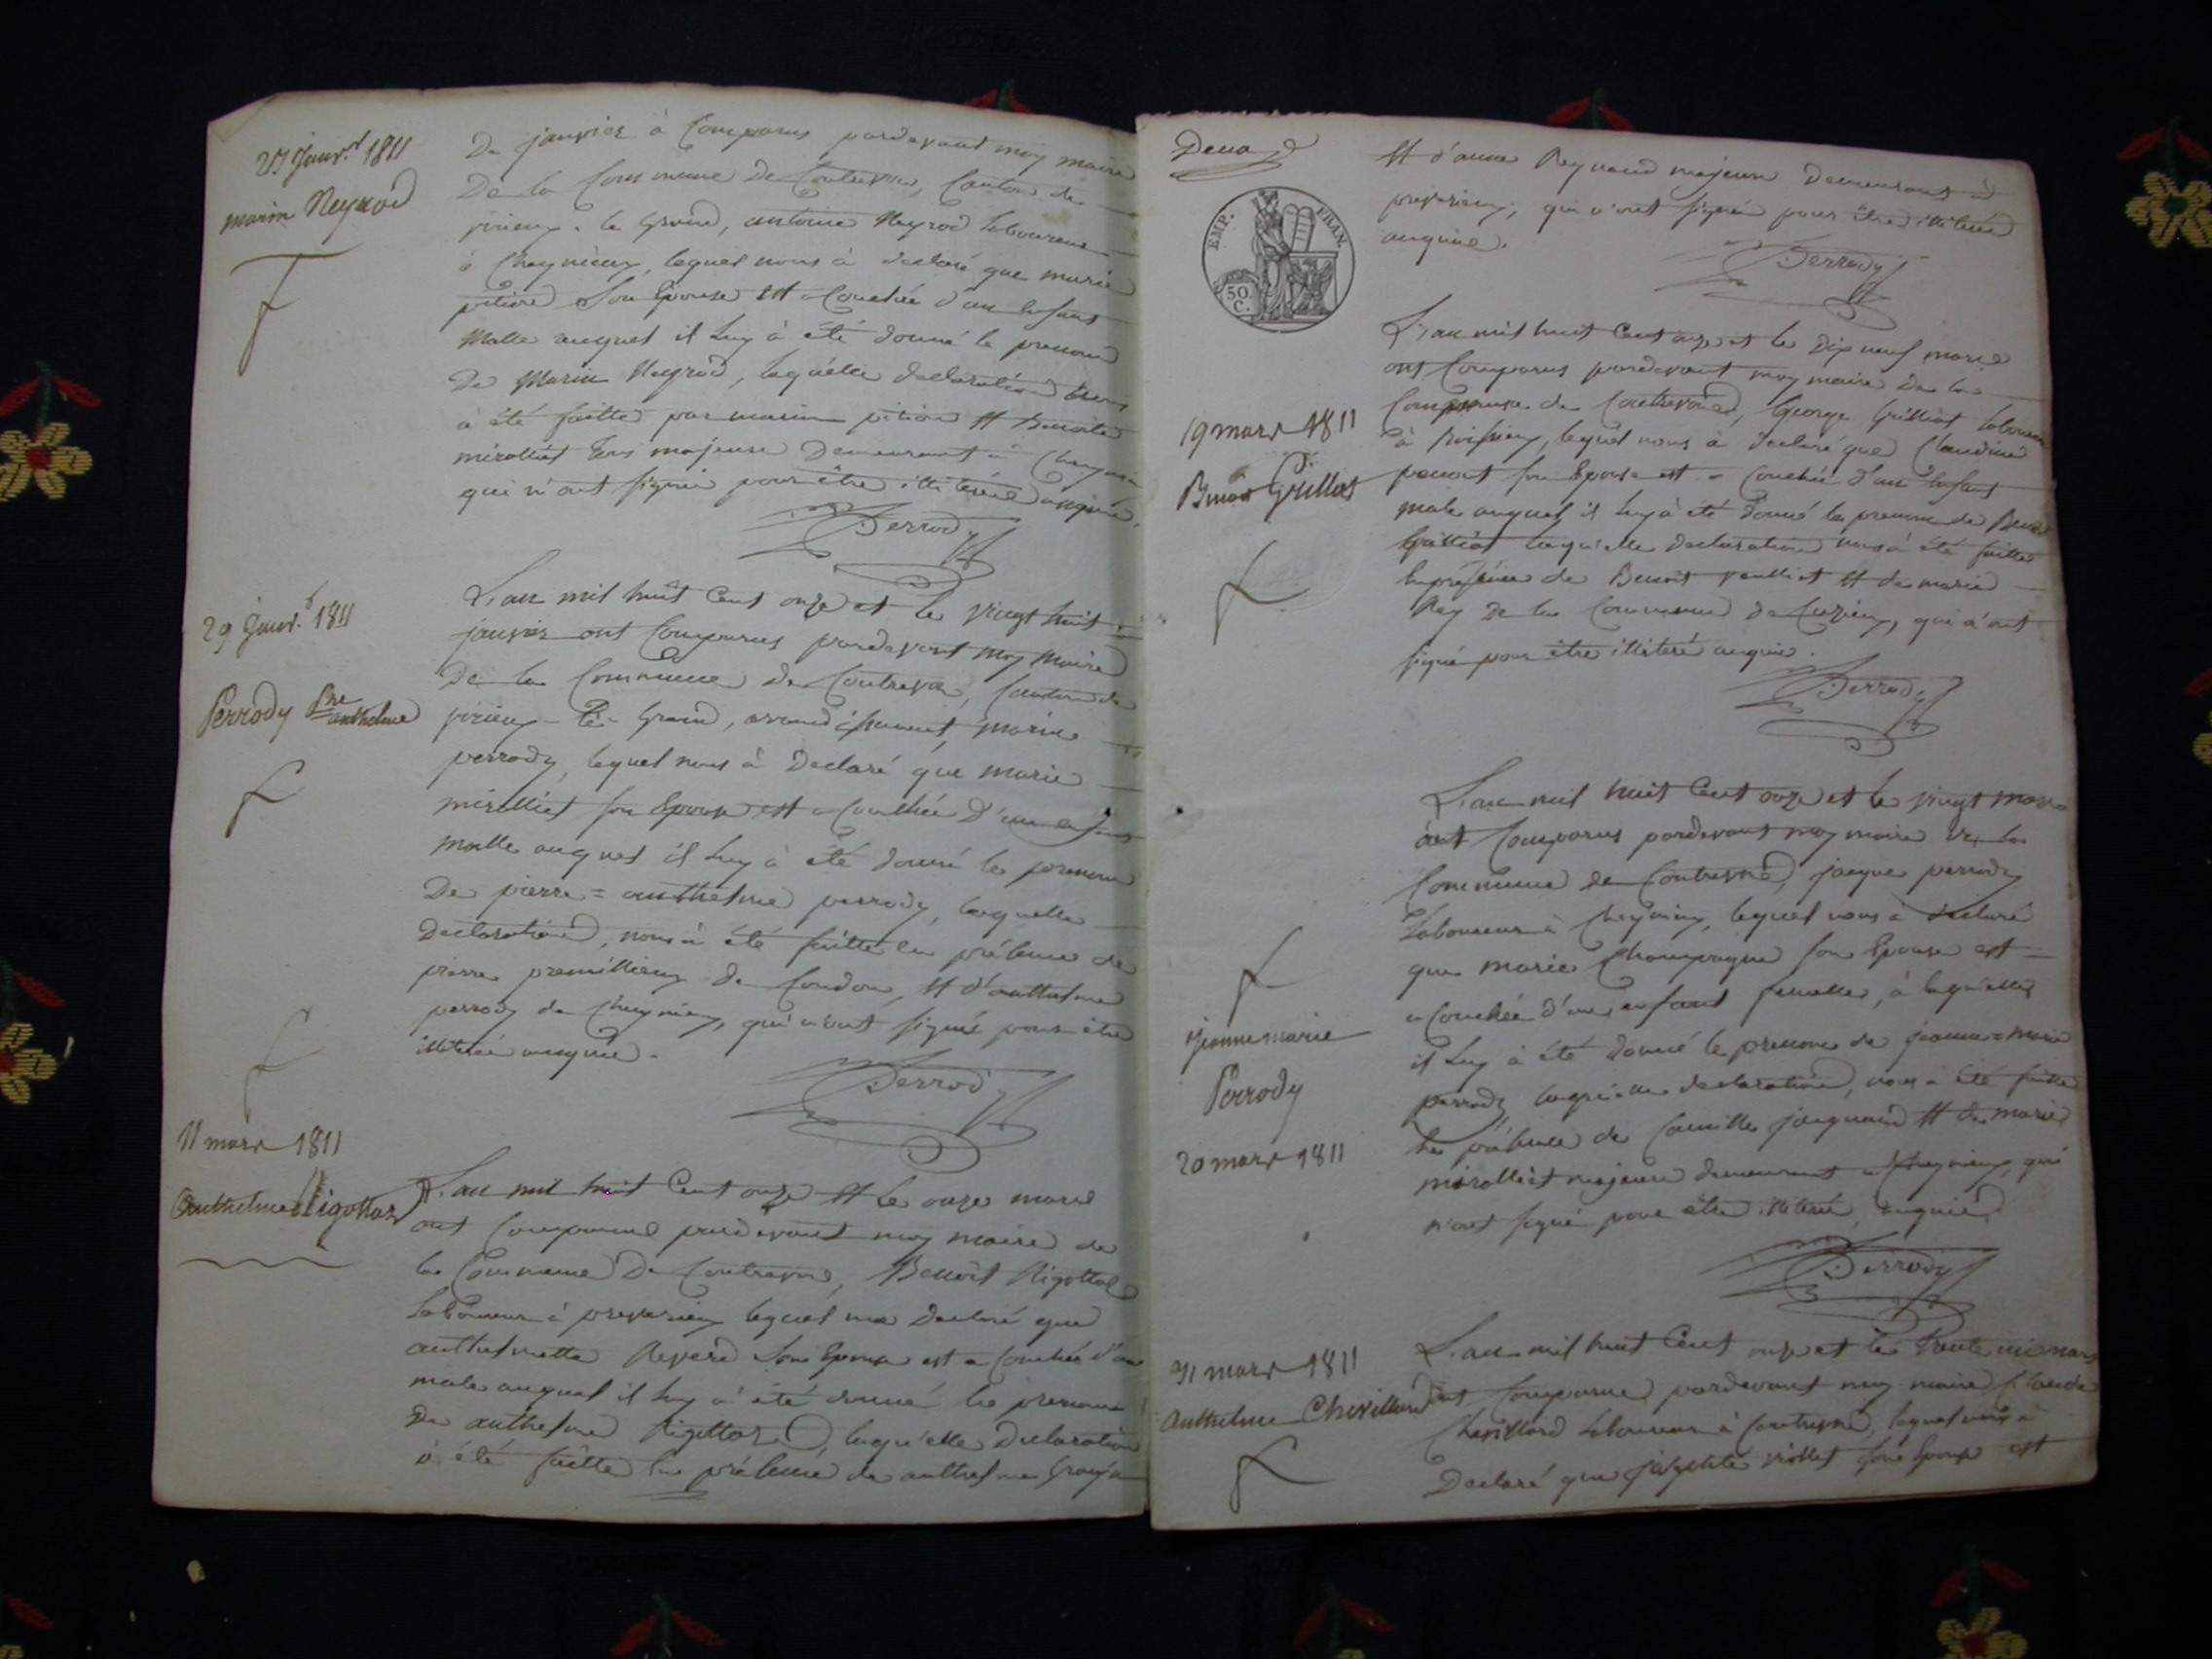 27 Janv.r 1811
marin Neyrod
De janvier à Comparus pardevant moy maire
De la Commune De Contrevoz, Canton de
virieux le Grand, antoine Neyrod laboureur
à Cheynieux, lequel nous à declaré que marie
pition Son Epouse est acouchée d'un enfant
Malle auquel il luy à été donné le prenom
De Marin Neyrod, laquelle declaration
à été faitte par marin pition et Benoite
mirolliet tous majeurs Demeurant à
qui n'ont signé pour être illiteré enquis.
Perrody
29 Janv. 1811
Perrody Pre
anthelme
L'an mil huit Cent onze et le vingt huit
janvier ont Comparus pardevant Moy Maire
De la Commune De Contrevoz, Canton de
virieux le Grand, arondissement, marin
perrody, lequel nous à Declaré que marie
mirolliet son Epouse est acouchée D'un enfant
malle auquel il luy à été donné le prenom
De pierre = anthelme perrody, laquelle
declaration, nous à été faitte en présence de
pierre premillieux de Condon, et d'anthelme
perrody de Cheynieux, qui n'ont signé pour être
illiteré enquis.
Perrody
11 mars 1811
Anthelme Rigottaz
L'an mil huit Cent onze et le onze mars
ont Comparus pardevant moy maire de
la Commune De Contrevoz, Benoit Rigottaz
laboureur à preverieux lequel me declaré que
anthelmette Revero Son Epouse est acouchée d'un
male auquel il luy à été donné le prenom
De anthelme Rigottaz, laquelle Declaration
à été faitte en présence de anthelme
Deux
EMP. FRAN.
50.
C.
et d'anne Reynaud majeurs Demeurant à
preverieux, qui n'ont signé pour être illiteré
enquis.
Perrody
19 mars 1811
Benoit Grilliet
L'an mil huit Cent onze et le Dix neuf mars
ont Comparus pardevant moy maire De la
Commune de Contrevoz, George Grilliet laboureur
à, lequel nous à declaré que Claudine
son Epouse est acouchée d'un Enfant
male auquel il luy à été donné le prenom de Benoit
Grilliet laquelle declaration nous à été faitte
En présence de Benoit et de marie
Rey De la Commune de Cuzieux, qui n'ont
signé pour être illiteré enquis.
Perrody
L'an mil huit Cent onze et le vingt mars
ont Comparus pardevant moy maire De la
Commune de Contrevoz, jacque perrody
Laboureur à Cheynieux, lequel nous à declaré
que marie Champagne son Epouse est
acouchée d'un enfant femelle, à laquelle
il luy à été donné le prenom de jeanne = marie
perrody laquelle declaration, nous à été faitte
En présence de Camille jacquand et de marie
mirolliet majeurs demeurant à Cheynieux, qui
n'ont signé pour être illiteré, enquis.
Perrody
jeanne marie
Perrody
20 mars 1811
31 mars 1811
Anthelme Chevillard
L'an mil huit Cent onze et le trente un mars
ont Comparus pardevant moy maire Claude
Chevillard laboureur à Contrevoz, lequel nous à
Declaré que viollet son Epouse est